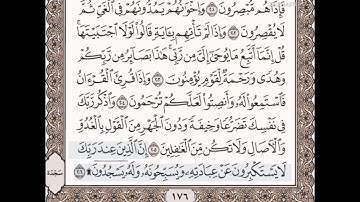 فَإِذَا هُم مُّبْصِرُونَ ٢٠١ وَإِخْوَانُهُمْ يَمُدُّونَهُمْ فِي الْغَيِّ ثُمَّ
لَا يُقْصِرُونَ ٢٠٢ وَإِذَا لَمْ تَأْتِهِم بِآيَةٍ قَالُوا لَوْلَا اجْتَبَيْتَهَا ۚ
قُلْ إِنَّمَا أَتَّبِعُ مَا يُوحَىٰ إِلَيَّ مِن رَّبِّي ۚ هَٰذَا بَصَائِرُ مِن رَّبِّكُمْ
وَهُدًى وَرَحْمَةٌ لِّقَوْمٍ يُؤْمِنُونَ ٢٠٣ وَإِذَا قُرِئَ الْقُرْآنُ
فَاسْتَمِعُوا لَهُ وَأَنصِتُوا لَعَلَّكُمْ تُرْحَمُونَ ٢٠٤ وَاذْكُر رَّبَّكَ
فِي نَفْسِكَ تَضَرُّعًا وَخِيفَةً وَدُونَ الْجَهْرِ مِنَ الْقَوْلِ بِالْغُدُوِّ
وَالْآصَالِ وَلَا تَكُن مِّنَ الْغَافِلِينَ ٢٠٥ إِنَّ الَّذِينَ عِندَ رَبِّكَ
لَا يَسْتَكْبِرُونَ عَنْ عِبَادَتِهِ وَيُسَبِّحُونَهُ وَلَهُ يَسْجُدُونَ ۩ ٢٠٦
سَجْدَة
١٧٦